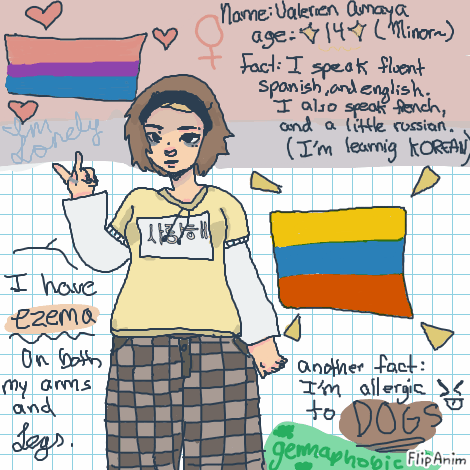 Name: Valerien Amaya
age: 14 (Minor~)
fact: I speak fluent
spanish, and english.
I also speak french,
and a little russian.
(I'm learnig KOREAN)
I'm
Lonely
사랑해
I have
ezema
On both
my arms
and
legs.
another fact:
I'm allergic
to DOGS
germaphobic
FlipAnim